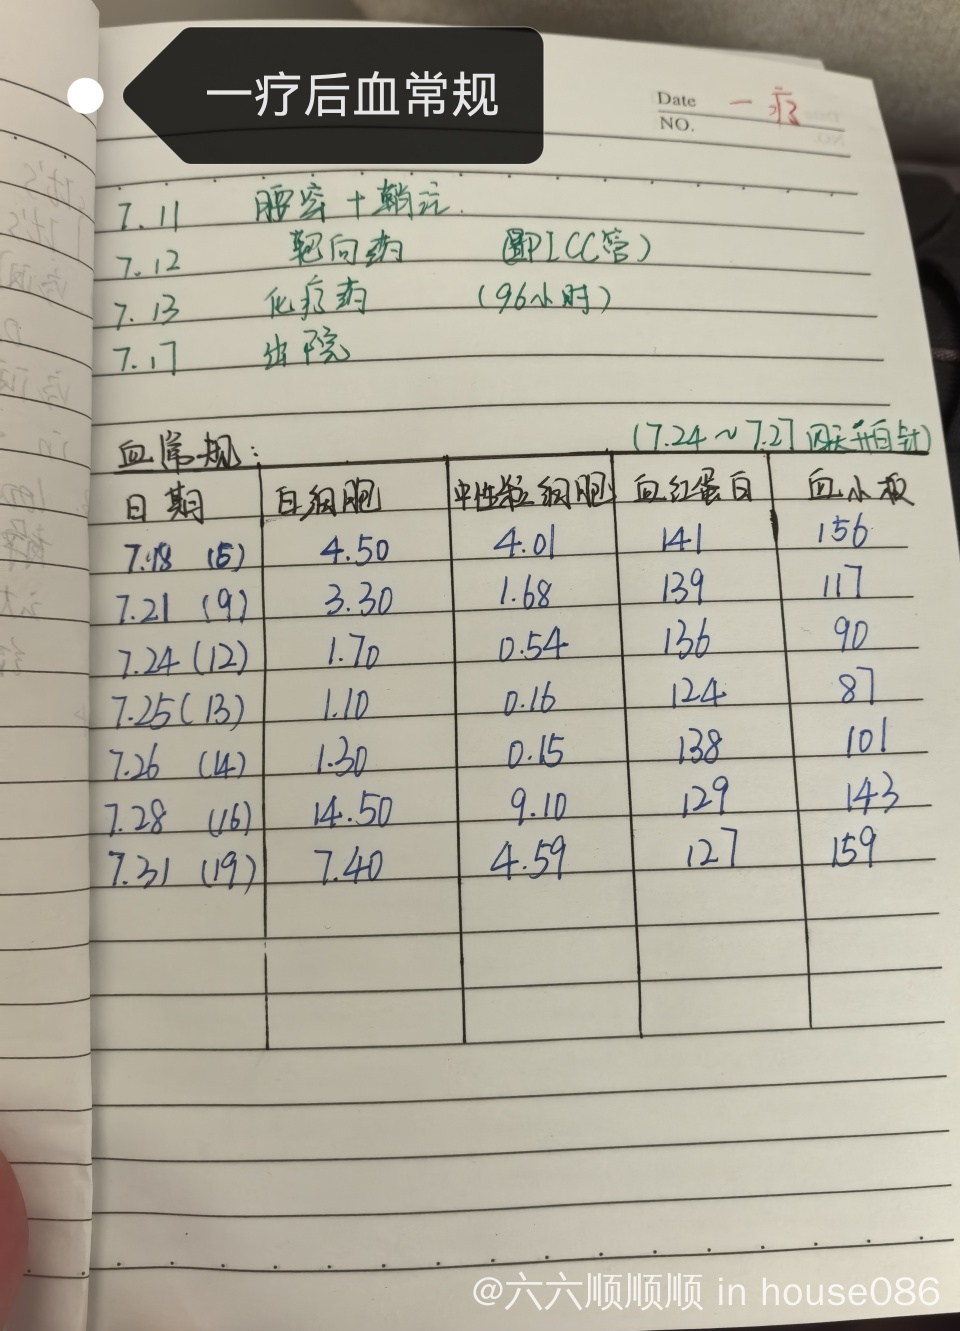 一疗后血常规
Date 一疗
NO.
7.11 腰穿+鞘注.
7.12 靶向药 (PICC管)
7.13 化疗药 (96小时)
7.17 出院
(7.24~7.27 四天升白针)
血常规:
日期 白细胞 中性粒细胞 血红蛋白 血小板
7.18 (5) 4.50 4.01 141 156
7.21 (9) 3.30 1.68 139 117
7.24 (12) 1.70 0.54 136 90
7.25 (13) 1.10 0.16 124 87
7.26 (14) 1.30 0.15 138 101
7.28 (16) 14.50 9.10 129 143
7.31 (19) 7.40 4.59 127 159
@六六顺顺顺 in house086